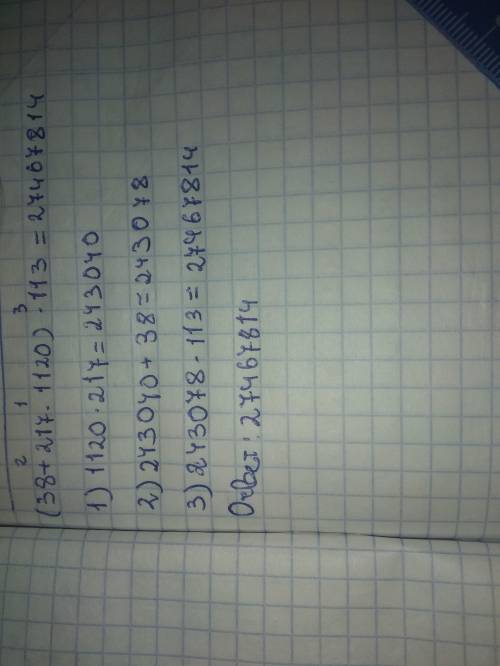 2 1 3
(38+217·1120)·113=27467814
1) 1120·217=243040
2) 243040+38=243078
3) 243078·113=27467814
Ответ: 27467814